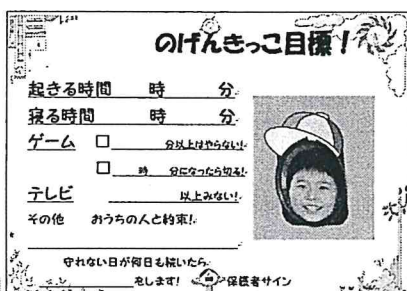 のげんきっこ目標！
起きる時間 時 分
寝る時間 時 分
ゲーム □ 分以上はやらない!
□ 時 分になったら切る!
テレビ 以上みない!
その他 おうちの人と約束!
守れない日が何日も続いたら
をします! 保護者サイン